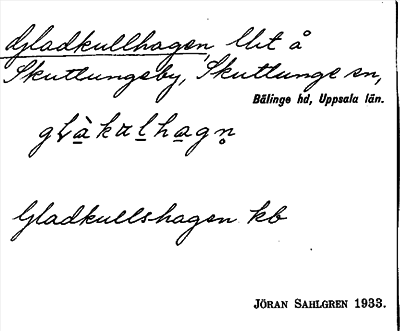 Gladkullhagen, lht å
Skuttungeby, Skuttunge sn,
Bälinge hd, Uppsala län.
Gladkullshagen kb
JÖRAN SAHLGREN 1933.